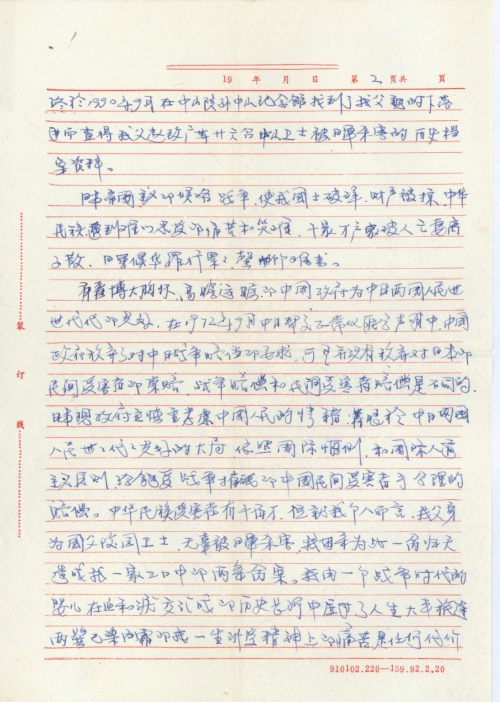 19 年 月 日 第 2 页共 页
终于1990年9月在中山陵孙中山纪念馆找到了我父亲的下落
进而查得我父赵政广等廿六名中山卫士被日军杀害的历史档
案资料。
日本帝国主义的侵略战争，使我国土破碎，财产被掠，中华
民族遭到难以忍受的痛苦和灾难，千家万户家破人亡妻离
子散，日军侵华罪行累累，罄竹难书。
有着博大胸怀，高瞻远瞩的中国政府为中日两国人民世
世代代的友好，在1972年9月中日邦交正常化联合声明中，中国
政府放弃了对中日战争赔偿的要求，可是并没有放弃对日本的
民间受害者的索赔，战争赔偿和民间受害者赔偿是不同的，
日本现政府应慎重考虑中国人民的情绪，着眼于中日两国
人民世世代代友好的大局 依照国际惯例，和国际人道
主义原则，给饱受战争损害的中国民间受害者予合理的
赔偿。中华民族受害者有千百万，但对我个人而言，我父身
为国父陵园卫士，无辜被日军杀害，我母亲为此一病归天
造成我一家三口中的两条命案。我由一个战争时代的
婴儿在血和泪交汇成的历史长河中度过了人生大半旅途
两鬓已染的霜的我一生所受精神上的痛苦是任何代价
装
订
线
910102.220—159.92.2.20